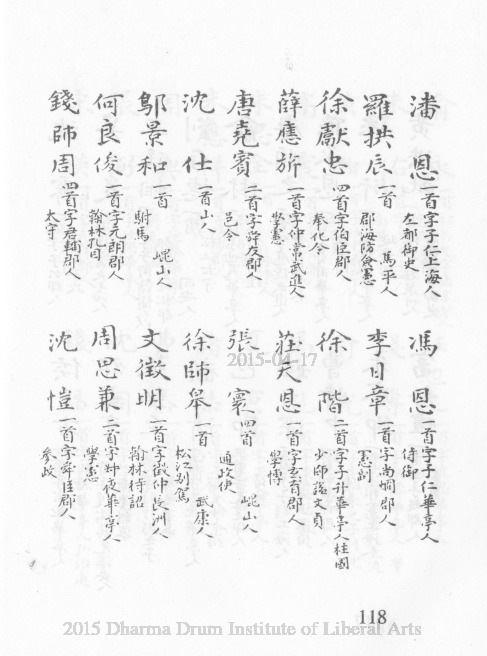 潘恩 一首字子仁上海人
左都御史
羅拱辰 一首 馬平人
郡海防僉憲
徐獻忠 四首字伯臣郡人
奉化令
薛應旂 一首字仲常武進人
學憲
唐堯賓 二首字舜友郡人
邑令
沈仕 一首山人
鄔景和 一首 崐山人
駙馬
何良俊 一首字元朗郡人
翰林孔目
錢師周 四首字君輔郡人
太守
馮恩 一首字子仁華亭人
侍御
李日章 一首字尚絅郡人
憲副
徐階 二首字子升華亭人柱國
少師諡文貞
莊天恩 一首字 郡人
學博
張寰 四首 崐山人
通政使
徐師皋 一首 武康人
松江別駕
文徵明 一首字徵仲長洲人
翰林待詔
周思兼 二首字叔夜華亭人
學憲
沈愷 一首字舜臣郡人
參政
2015-04-17
118
2015 Dharma Drum Institute of Liberal Arts